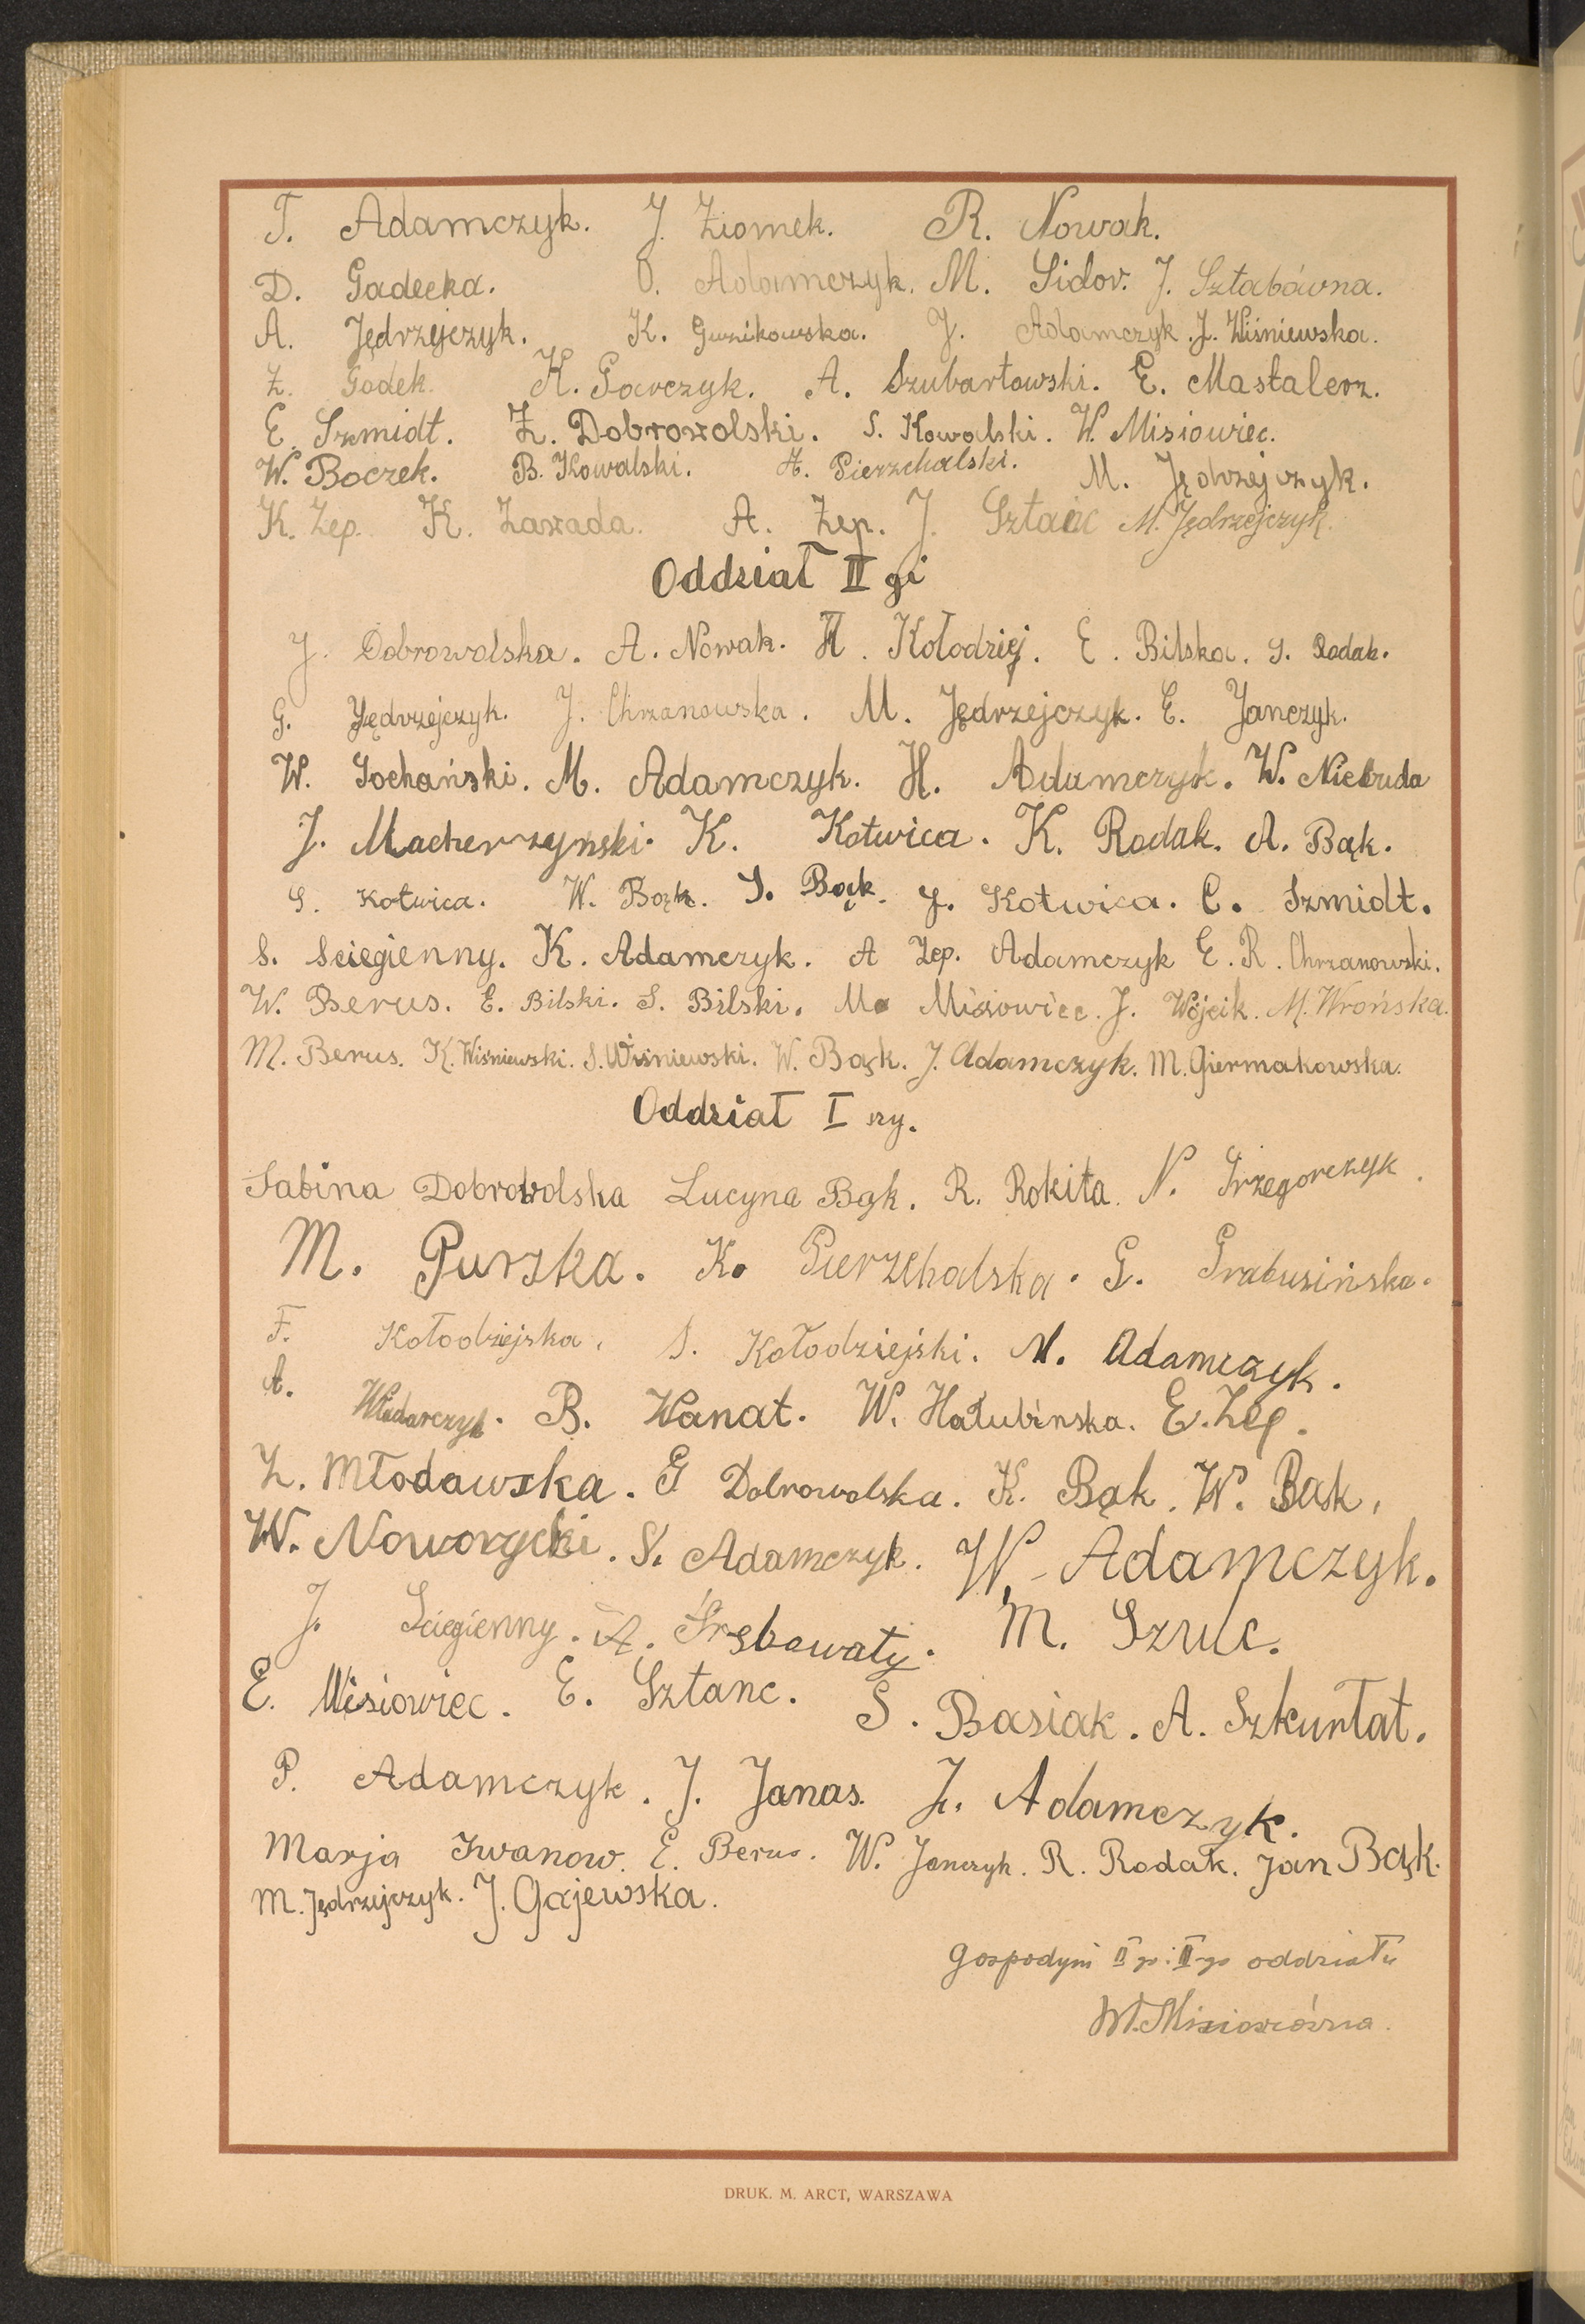 T. Adamczyk. J. Ziomek. R. Nowak.
D. Gadecka. O. Adamczyk. M. Sidor. J. Sztabówna.
A. Jędrzejczyk. K. Guzikowska. J. Adamczyk. J. Wiśniewska.
Z. Godek. K. Garczyk. A. Szubartowski. E. Mastalerz.
E. Szmidt. Z. Dobrowolski. S. Kowalski. W. Misiowiec.
W. Boczek. B. Kowalski. A. Pierzchalski. M. Jędrzejczyk.
K. Zep. K. Zawada. A. Zep. J. Sztanc M. Jędrzejczyk.
Oddział II gi
J. Dobrowolska. A. Nowak. H. Kołodziej. E. Bilska. S. Rodak.
G. Jędrzejczyk. J. Chrzanowska. M. Jędrzejczyk. E. Janczyk.
W. Sochański. M. Adamczyk. H. Adamczyk. W. Niebuda
J. Macherzynski. K. Kotwica. K. Rodak. A. Bąk.
S. Kotwica. W. Bąk. S. Bąk. J. Kotwica. C. Szmidt.
S. Sciegienny. K. Adamczyk. A Zep. Adamczyk E. R. Chrzanowski.
W. Berus. E. Bilski. S. Bilski. M. Misiowiec. J. Wójcik. M. Wrońska.
M. Berus. K. Wiśniewski. S. Wiśniewski. W. Bąk. J. Adamczyk. M. Giermakowska.
Oddział I szy.
Sabina Dobrowolska Lucyna Bąk. R. Rokita. N. Grzegorczyk.
M. Puszka. K. Pierzchalska. G. Grabusińska.
F. Kołodziejska. S. Kołodziejski. M. Adamczyk.
A. Włodarczyk. B. Wanat. W. Hałubinska. E. Zep.
Z. Młodawska. G Dobrowolska. K. Bąk. W. Bąk.
W. Noworycki. S. Adamczyk. W. Adamczyk.
J. Sciegienny. A. Grębowaty. M. Szulc.
E. Misiowiec. E. Sztanc. S. Basiak. A. Szkurłat.
P. Adamczyk. J. Janas. Z. Adamczyk.
Marja Iwanow. E. Berus. W. Janczyk. R. Rodak. Jan Bąk.
M. Jędrzejczyk. J. Gajewska.
Gospodyni II go i III go oddziału
DRUK. M. ARCT, WARSZAWA